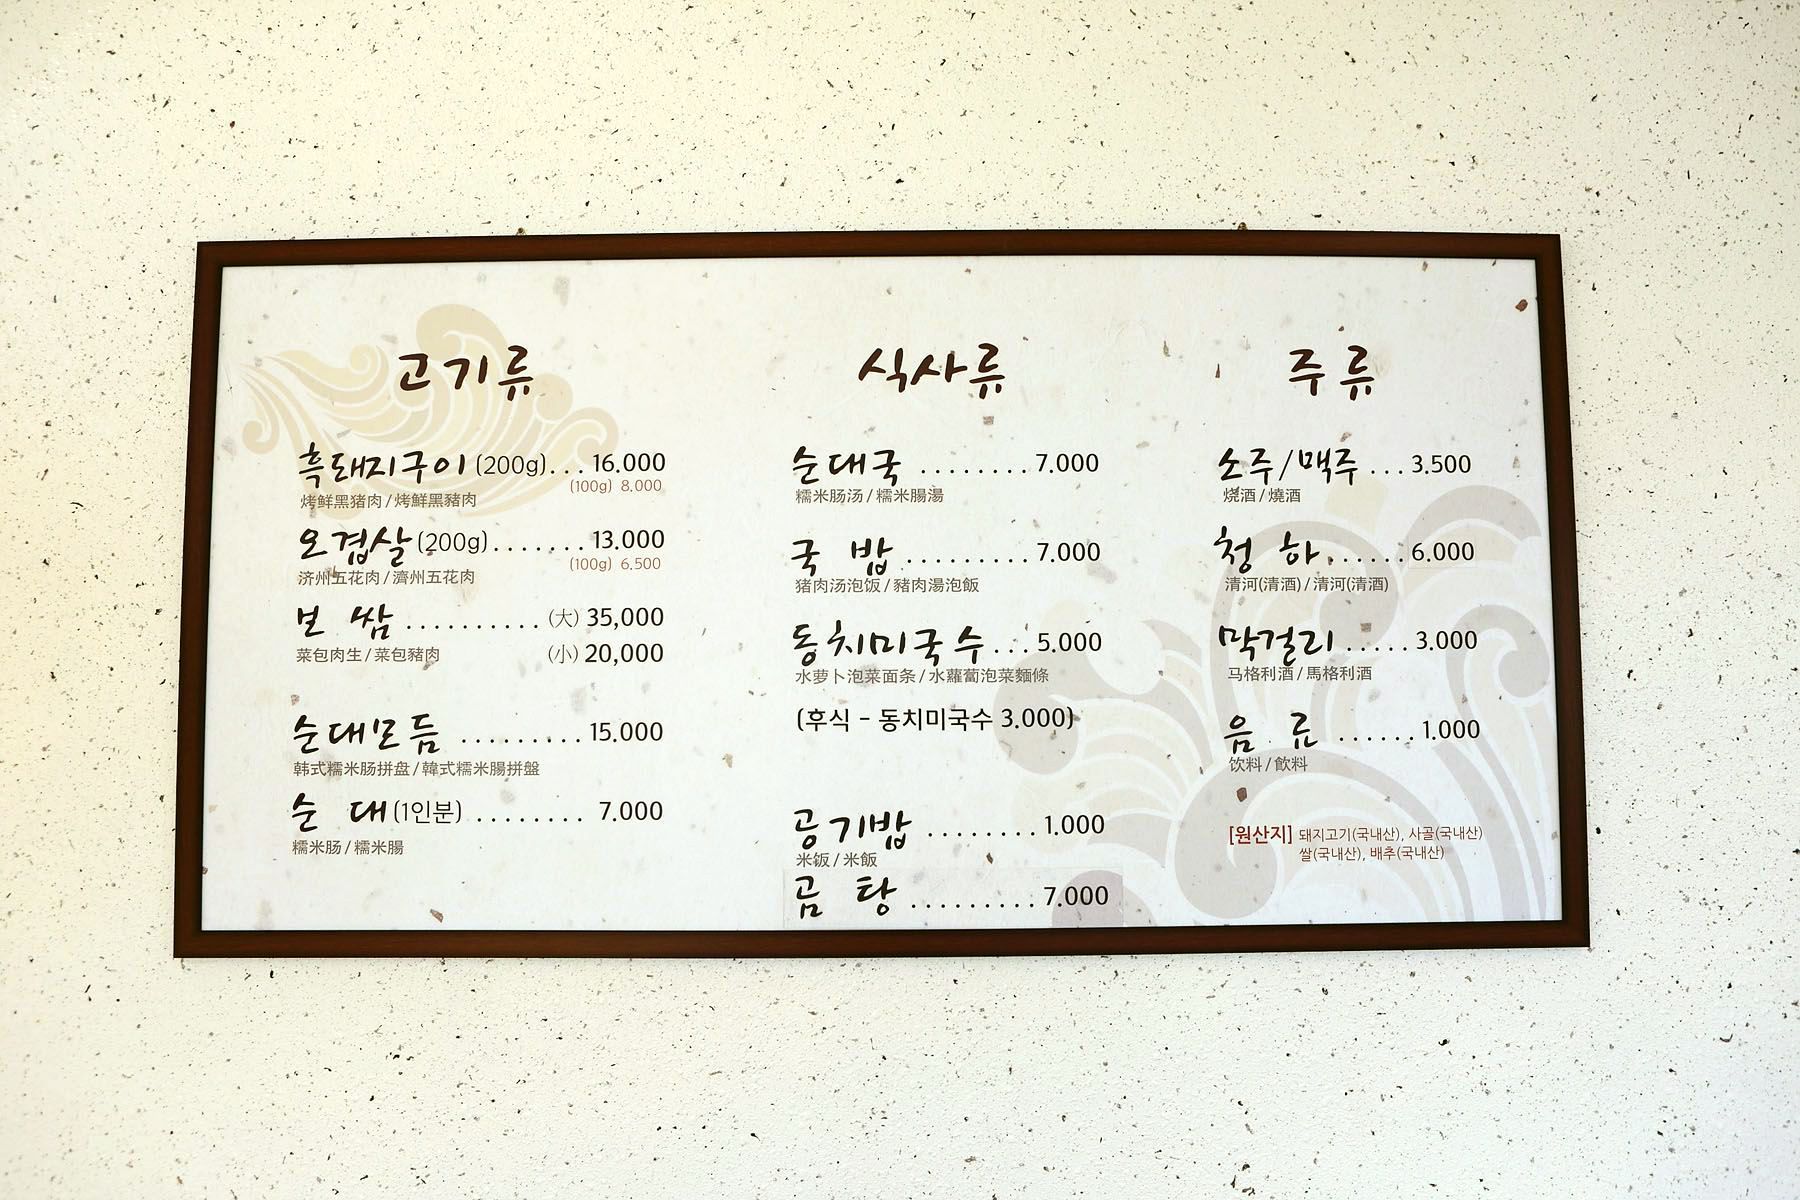 고기류
흑돼지구이 (200g)... 16.000
(100g) 8.000
烤鲜黑猪肉 / 烤鮮黑豬肉
오겹살 (200g)....... 13.000
(100g) 6.500
济州五花肉 / 濟州五花肉
보 쌈 .......... (大) 35,000
菜包肉生 / 菜包豬肉 (小) 20,000
순대모듬 ......... 15.000
韩式糯米肠拼盘 / 韓式糯米腸拼盤
순 대 (1인분) ........ 7.000
糯米肠 / 糯米腸
식사류
순대국 ........ 7.000
糯米肠汤 / 糯米腸湯
국 밥 ......... 7.000
猪肉汤泡饭 / 豬肉湯泡飯
동치미국수 ... 5.000
水萝卜泡菜面条 / 水蘿蔔泡菜麵條
(후식 - 동치미국수 3.000)
공기밥 ........ 1.000
米饭 / 米飯
곰 탕 ......... 7.000
주류
소주/맥주 ... 3.500
烧酒 / 燒酒
청 하 ...... 6.000
清河(清酒) / 清河(清酒)
막걸리 ..... 3.000
马格利酒 / 馬格利酒
음 료 ...... 1.000
饮料 / 飲料
[원산지] 돼지고기(국내산), 사골(국내산)
쌀(국내산), 배추(국내산)